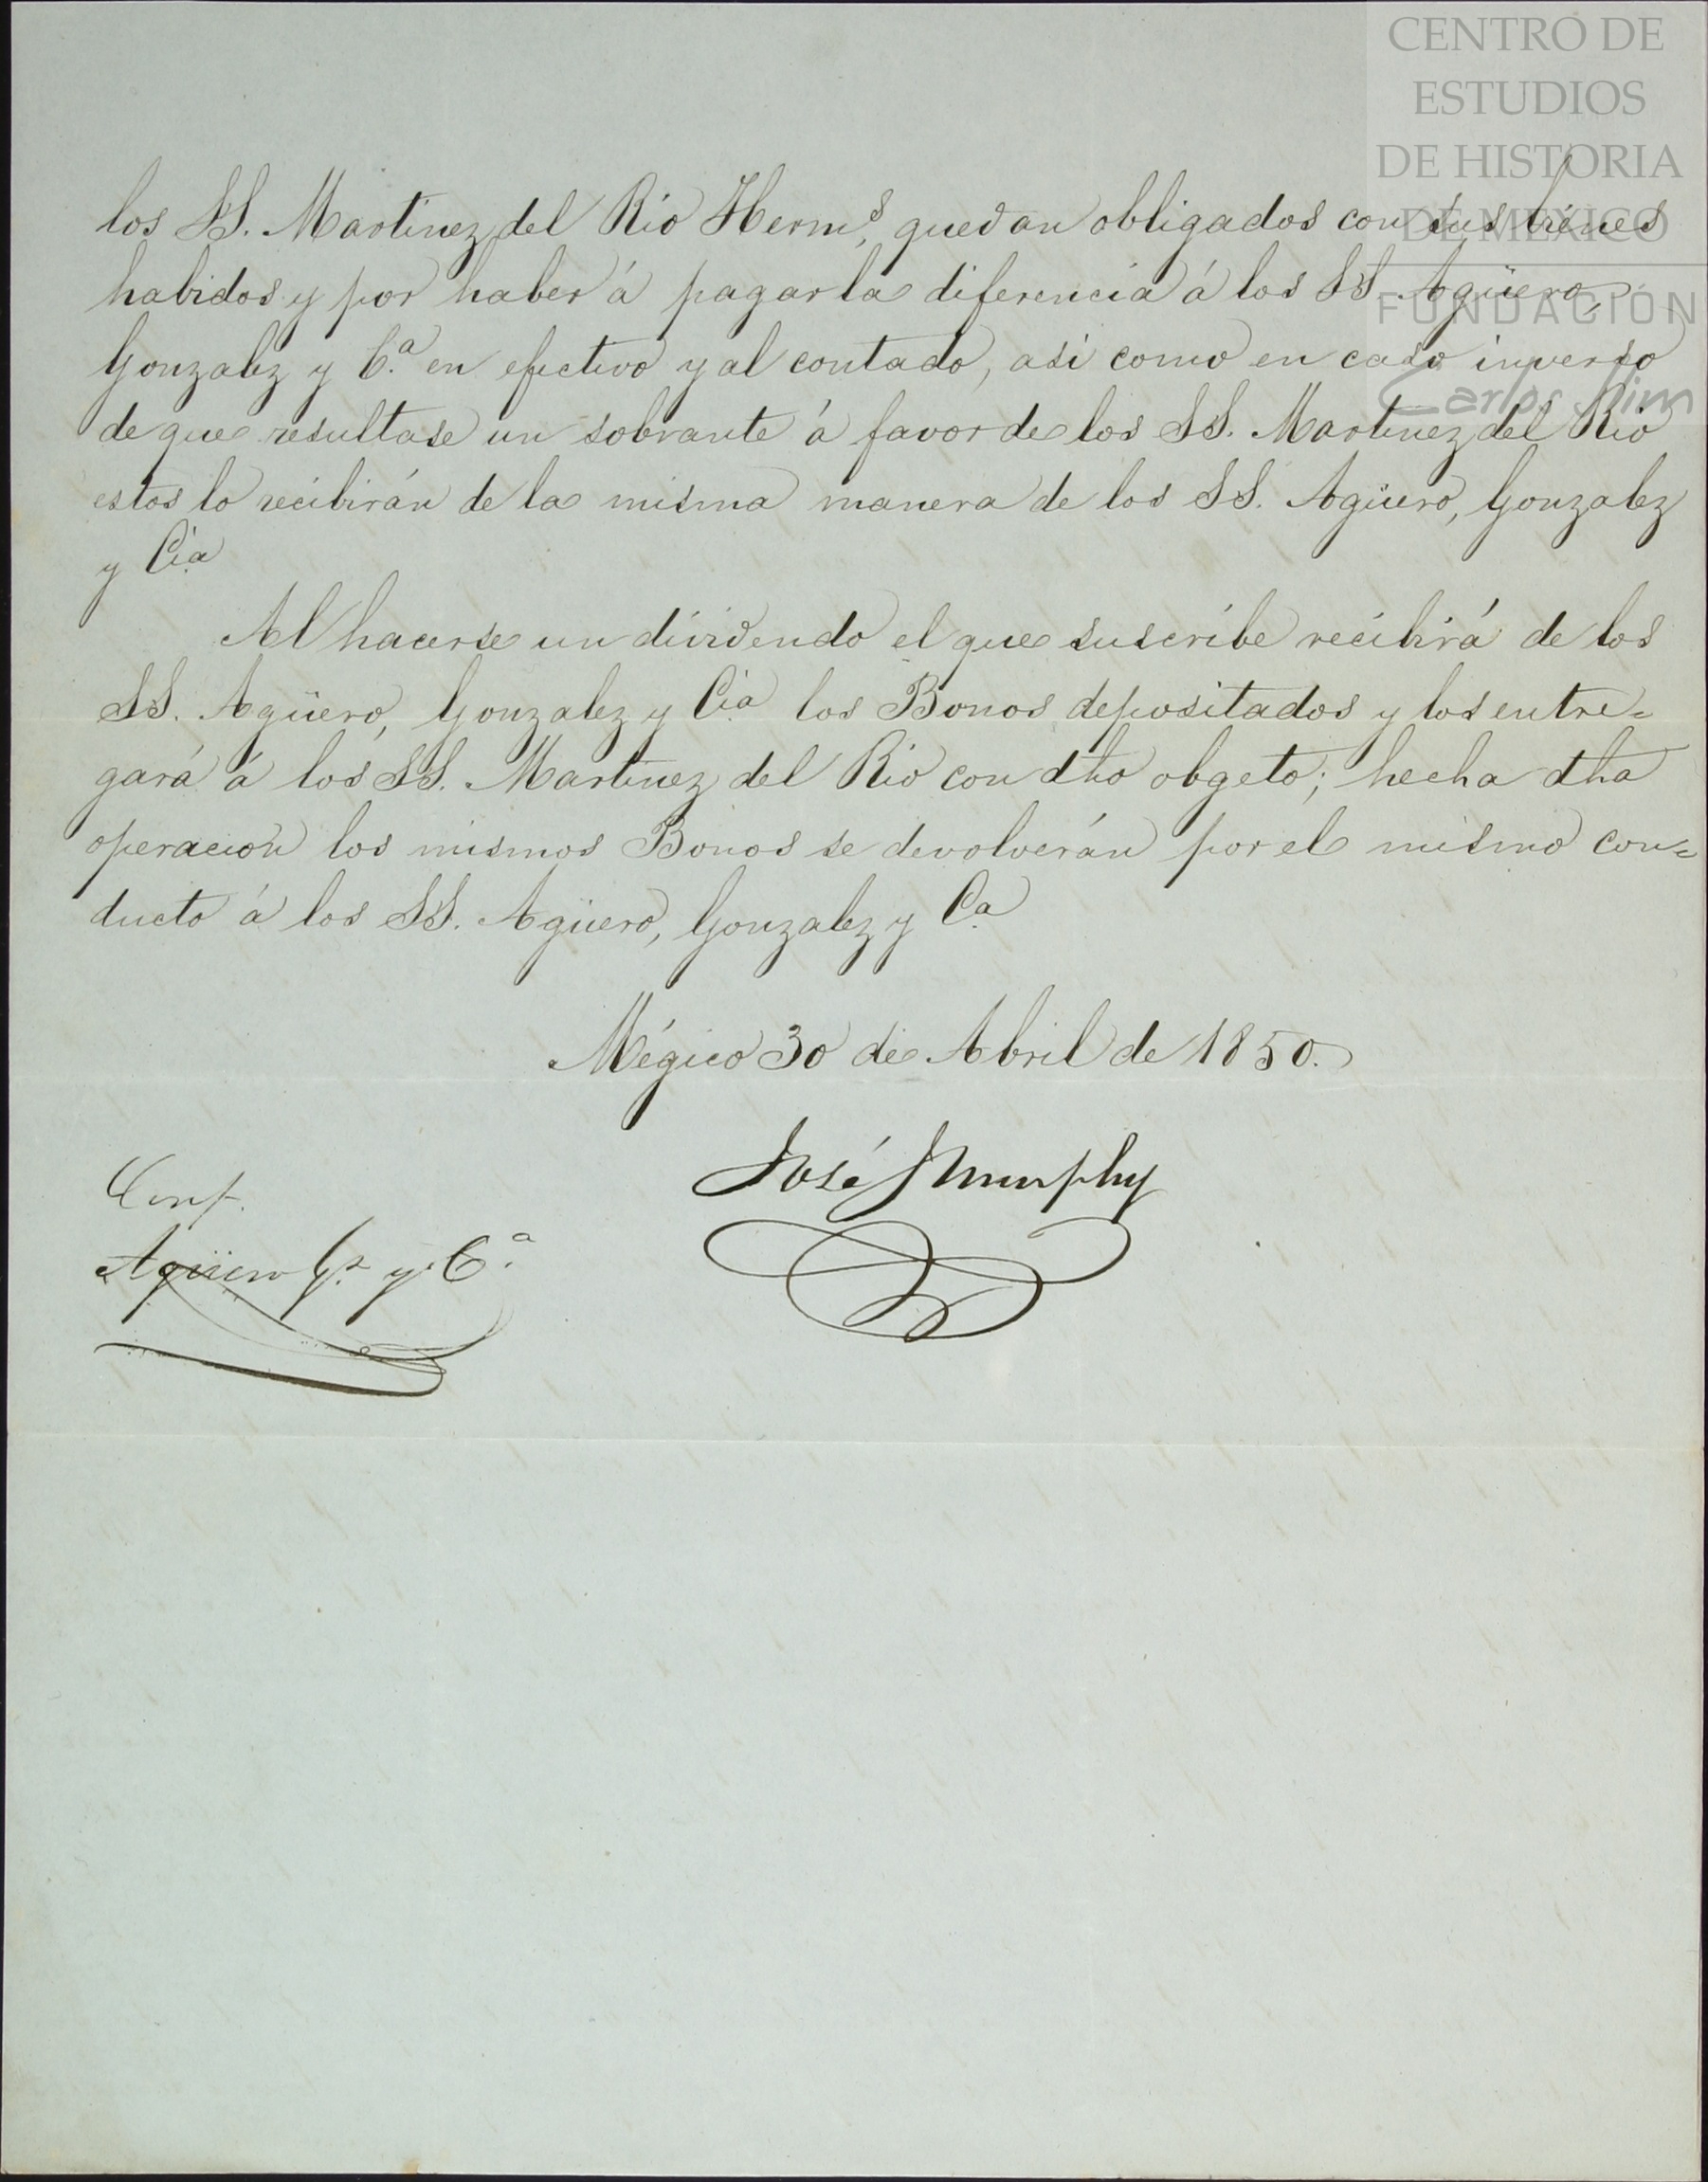 CENTRO DE
ESTUDIOS
DE HISTORIA
DE MÉXICO
FUNDACIÓN
Carlos Slim
los SS. Martinez del Rio Herm.s, quedan obligados con sus biénes
habidos y por haber á pagar la diferencia á los SS. Agüero,
Gonzalez y C.a en efectivo y al contado, asi como en caso inverso
de que resultase un sobrante á favor de los SS. Martinez del Rio
estos lo recibirán de la misma manera de los SS. Agüero, Gonzalez
y Cia
Al hacerse un dividendo el que suscribe recibirá de los
SS. Agüero, Gonzalez y Cia los Bonos depositados y los entre=
gará á los SS. Martinez del Rio con dho obgeto; hecha dha
operacion los mismos Bonos se devolverán por el mismo con=
ducto á los SS. Agüero, Gonzalez y Ca
Mégico 30 de Abril de 1850.
José Murphy
Conf.
Agüero Gz. y C.a